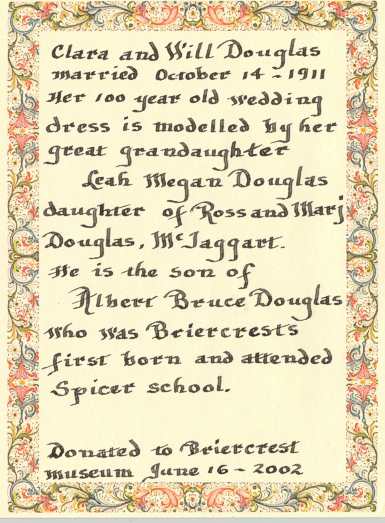 Clara and Will Douglas
married October 14 - 1911
Her 100 year old wedding
dress is modelled by her
great grandaughter
Leah Megan Douglas
daughter of Ross and Marj
Douglas, McTaggart.
He is the son of
Albert Bruce Douglas
who was Briercrests
first born and attended
Spicer school.
Donated to Briercrest
museum June 16 - 2002